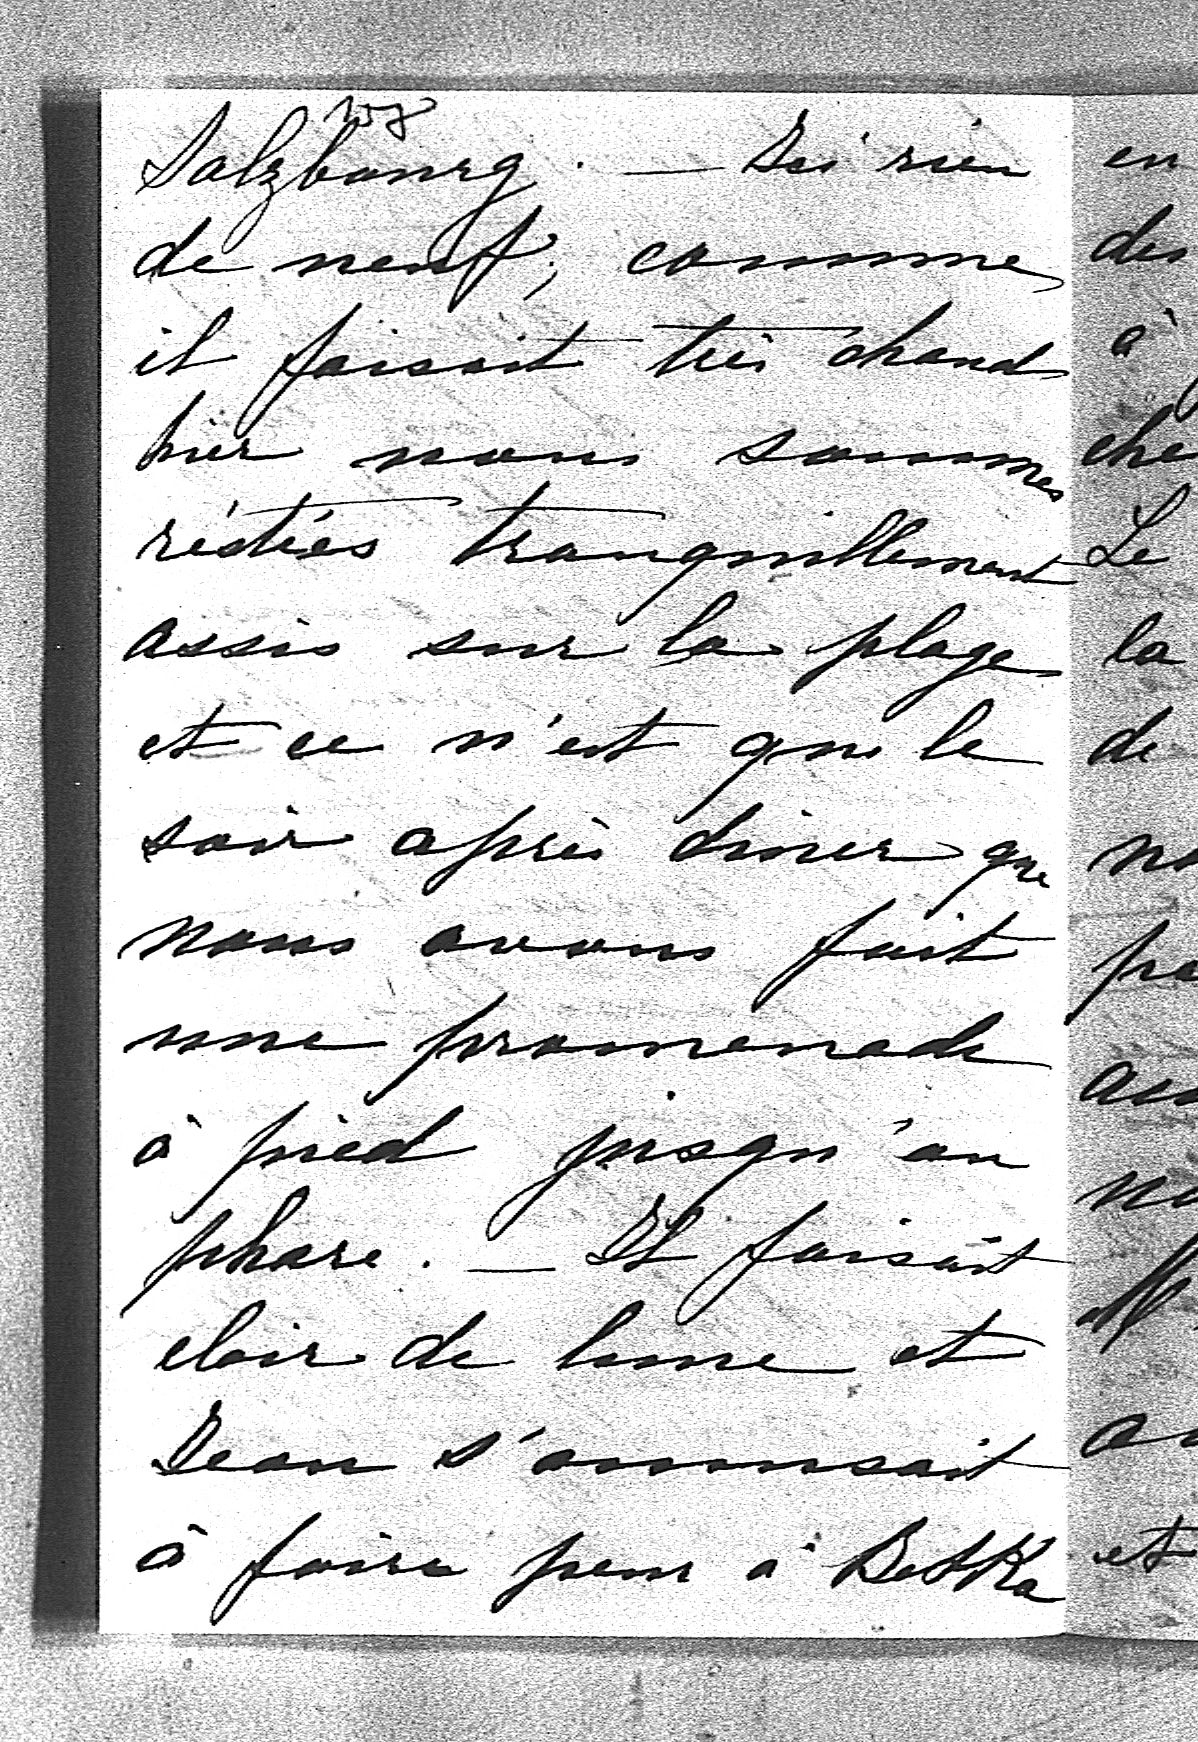 Salzbourg. — Ici rien
de neuf; comme
il faisait très chaud
hier nous sommes
réstés tranquillement
assis sur la plage
et ce n'est que le
soir après diner que
nous avons fait
une promenade
à pied jusqu'au
phare. — Il faisait
clair de lune et
Jean s'amusait
à faire peur à Betka
en
des
à
che
Le
la
de
et